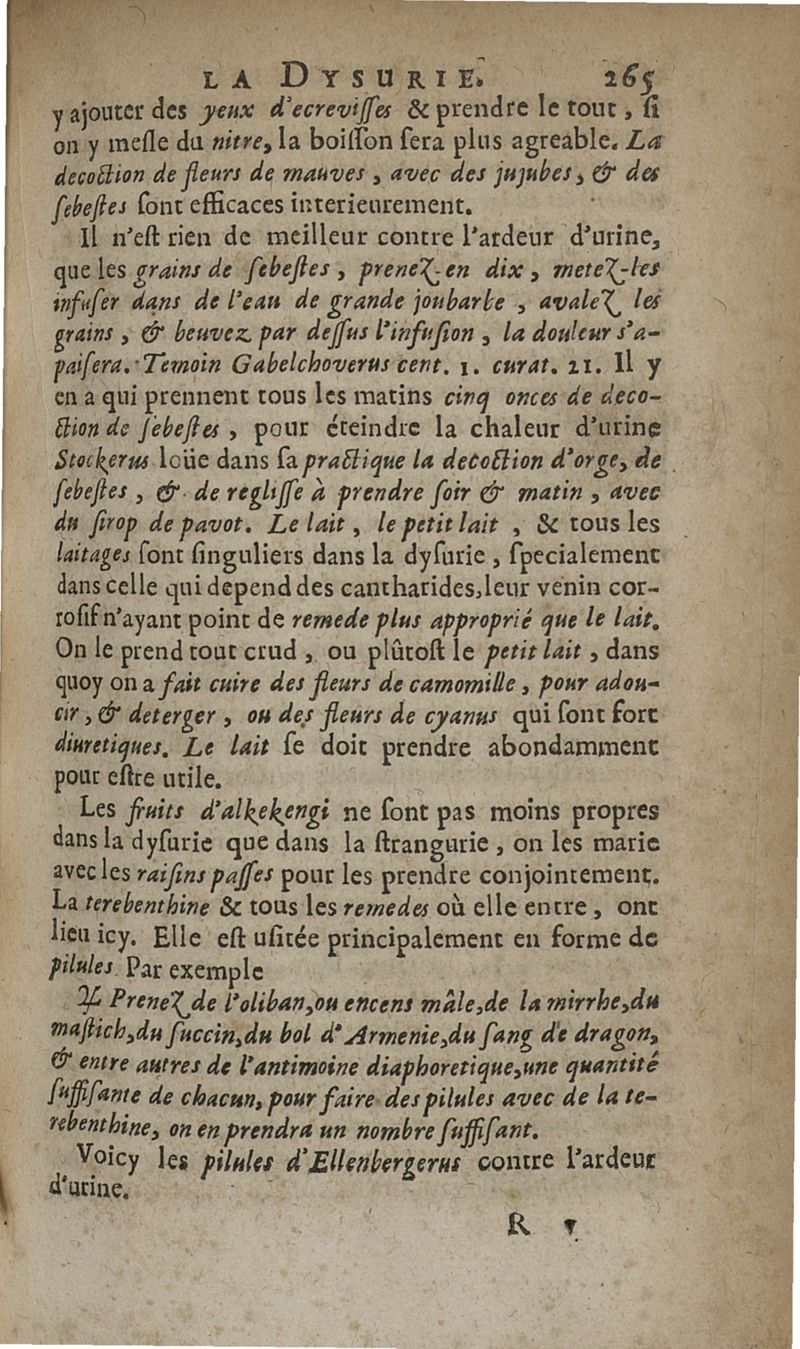 LA DYSURIE. 265
y ajouter des yeux d'ecrevisſes & prendre le tout, ſi
on y meſle du nitre, la boiſſon ſera plus agreable. La
decoction de fleurs de mauves, avec des jujubes, & des
ſebeſtes ſont efficaces interieurement.
Il n'eſt rien de meilleur contre l'ardeur d'urine,
que les grains de ſebeſtes, prenez-en dix, metez-les
infuſer dans de l'eau de grande joubarbe, avalez les
grains, & beuvez par deſſus l'infuſion, la douleur s'a-
paiſera. Temoin Gabelchoverus cent. 1. curat. 21. Il y
en a qui prennent tous les matins cinq onces de deco-
ction de ſebeſtes, pour éteindre la chaleur d'urine
Stockerus loüe dans ſa practique la decoction d'orge, de
ſebeſtes, & de regliſſe à prendre ſoir & matin, avec
du ſirop de pavot. Le lait, le petit lait, & tous les
laitages ſont ſinguliers dans la dyſurie, ſpecialement
dans celle qui depend des cantharides, leur venin cor-
roſif n'ayant point de remede plus approprié que le lait.
On le prend tout crud, ou plûtoſt le petit lait, dans
quoy on a fait cuire des fleurs de camomille, pour adou-
cir, & deterger, ou des fleurs de cyanus qui ſont fort
diuretiques. Le lait ſe doit prendre abondamment
pour eſtre utile.
Les fruits d'alkekengi ne ſont pas moins propres
dans la dyſurie que dans la ſtrangurie, on les marie
avec les raiſins paſſes pour les prendre conjointement.
La terebenthine & tous les remedes où elle entre, ont
lieu icy. Elle eſt uſitée principalement en forme de
pilules. Par exemple
♃ Prenez de l'oliban, ou encens mâle, de la mirrhe, du
maſtich, du ſuccin, du bol d'Armenie, du ſang de dragon,
& entre autres de l'antimoine diaphoretique, une quantité
ſuffiſante de chacun, pour faire des pilules avec de la te-
rebenthine, on en prendra un nombre ſuffiſant.
Voicy les pilules d'Ellenbergerus contre l'ardeur
d'urine.
R v